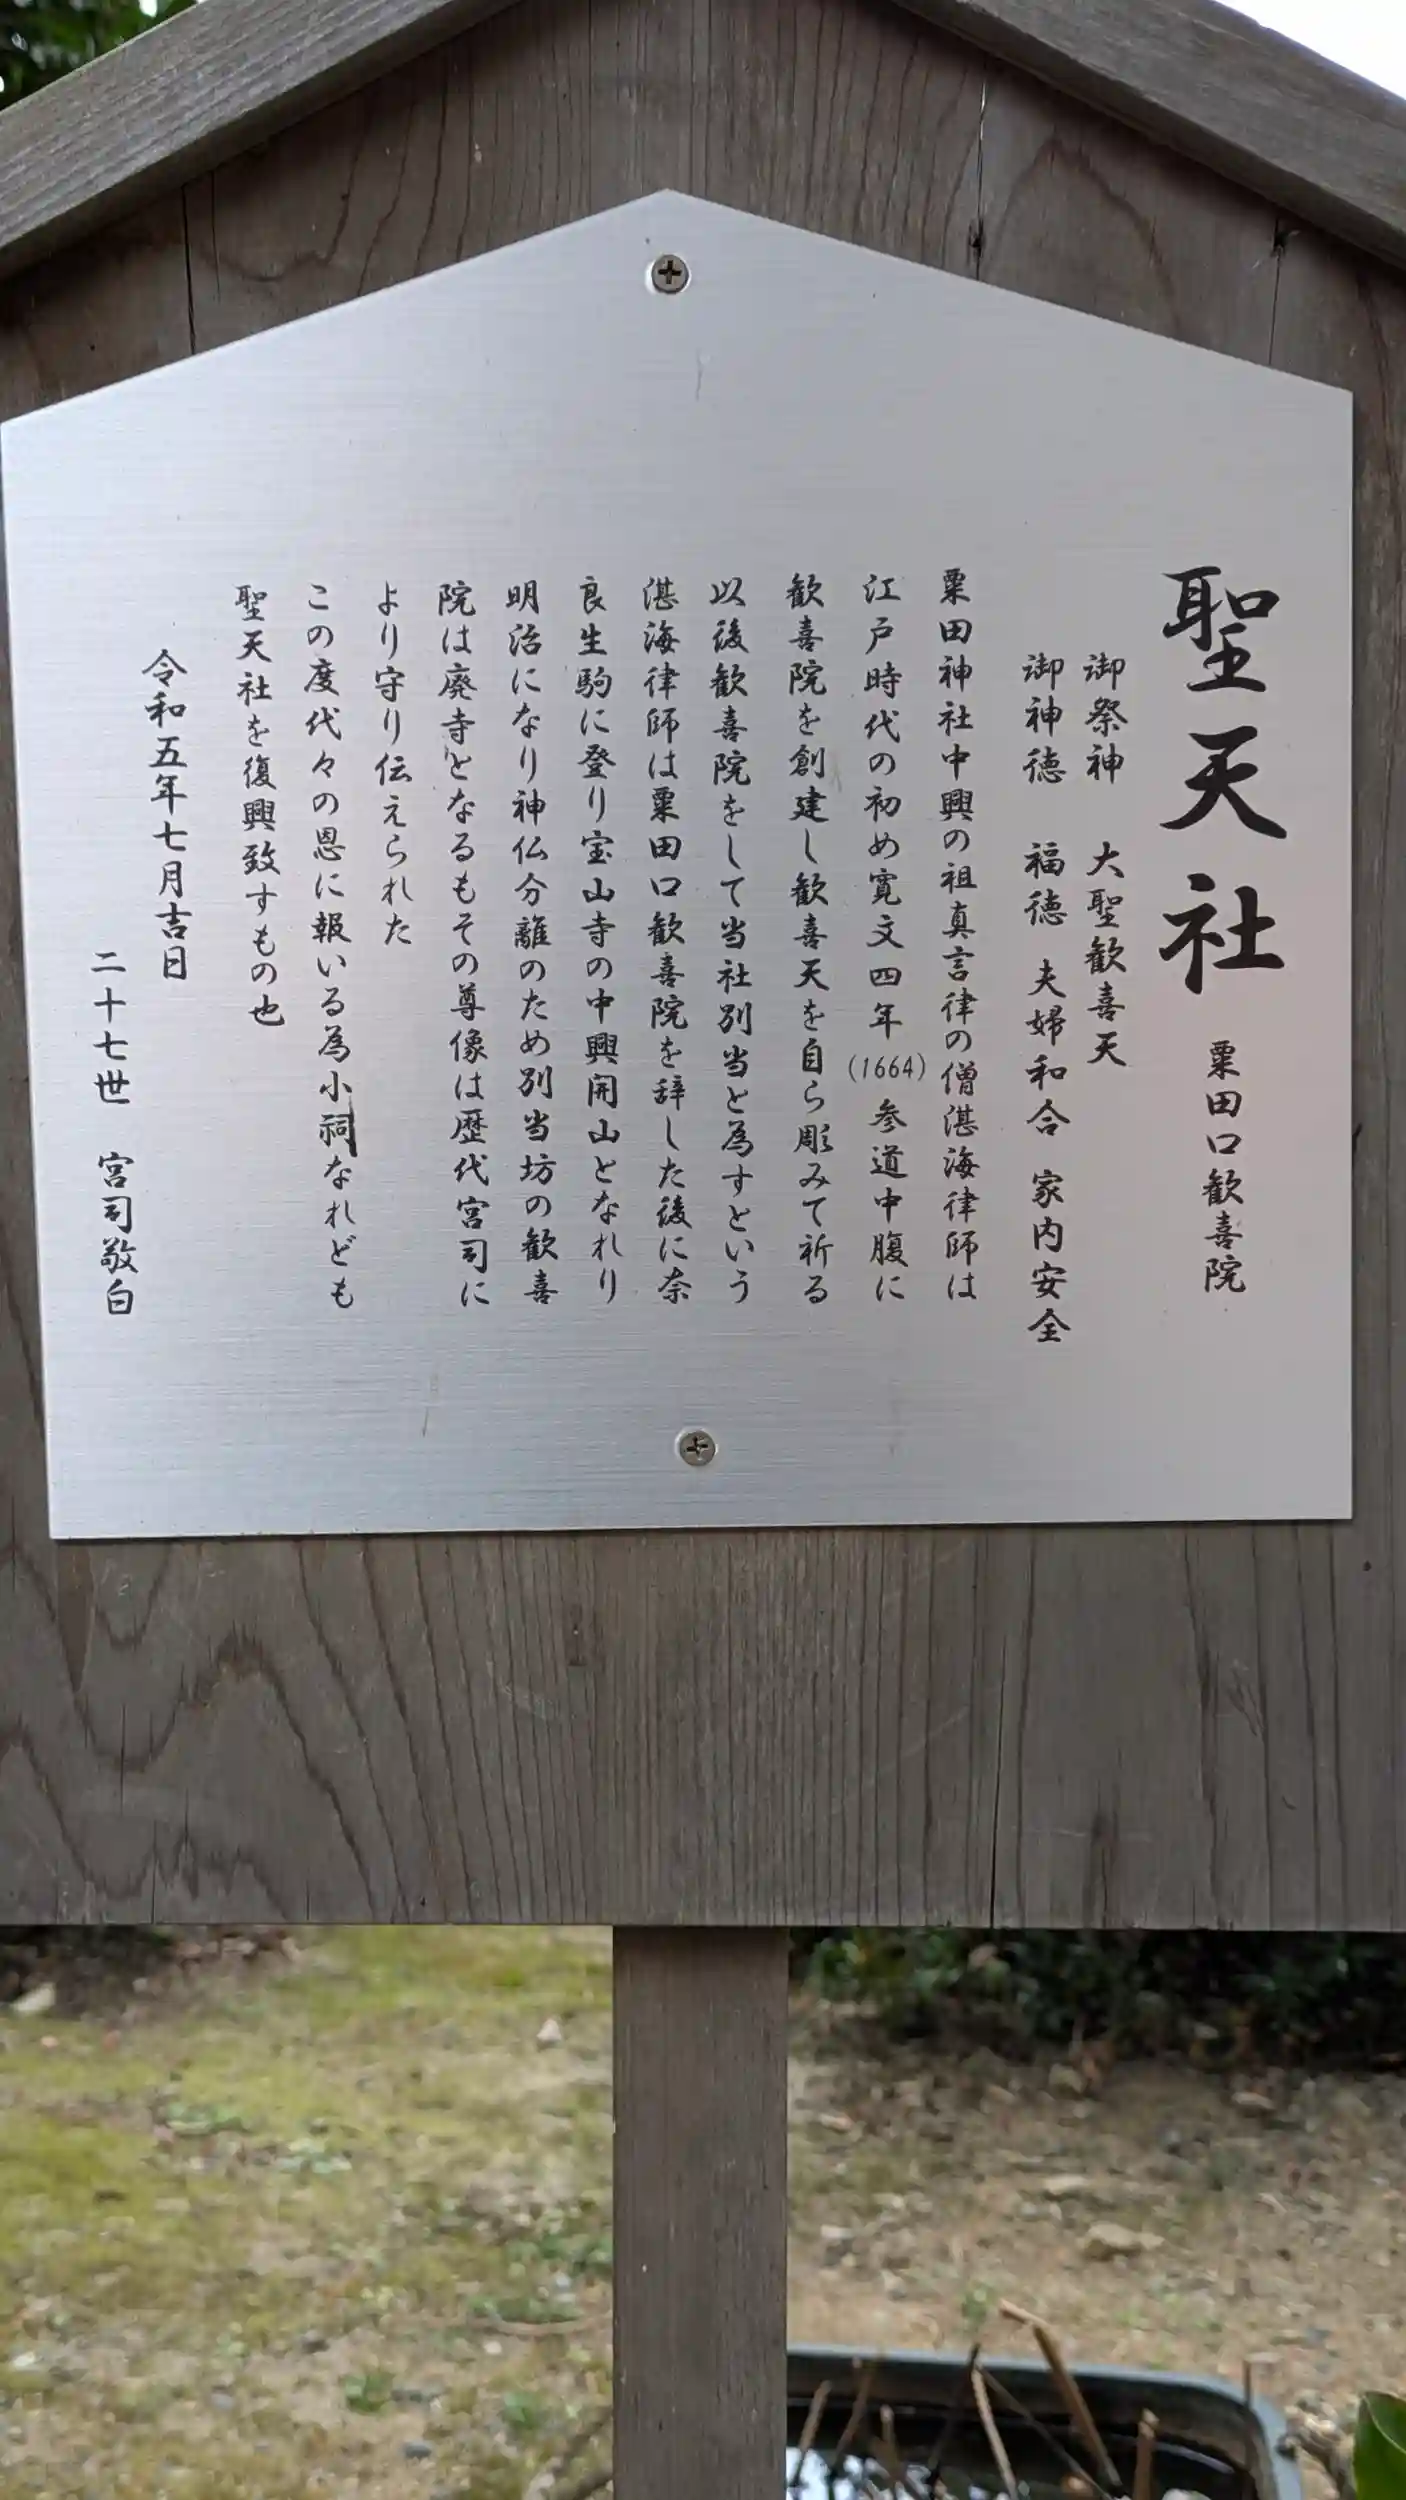 聖天社 粟田口歓喜院
御祭神 大聖歓喜天
御神徳 福徳 夫婦和合 家内安全
粟田神社中興の祖真言律の僧湛海律師は
江戸時代の初め寛文四年(1664)参道中腹に
歓喜院を創建し歓喜天を自ら彫みて祈る
以後歓喜院をして当社別当と為すという
湛海律師は粟田口歓喜院を辞した後に奈
良生駒に登り宝山寺の中興開山となれり
明治になり神仏分離のため別当坊の歓喜
院は廃寺となるもその尊像は歴代宮司に
より守り伝えられた
この度代々の恩に報いる為小祠なれども
聖天社を復興致すもの也
令和五年七月吉日
二十七世 宮司敬白